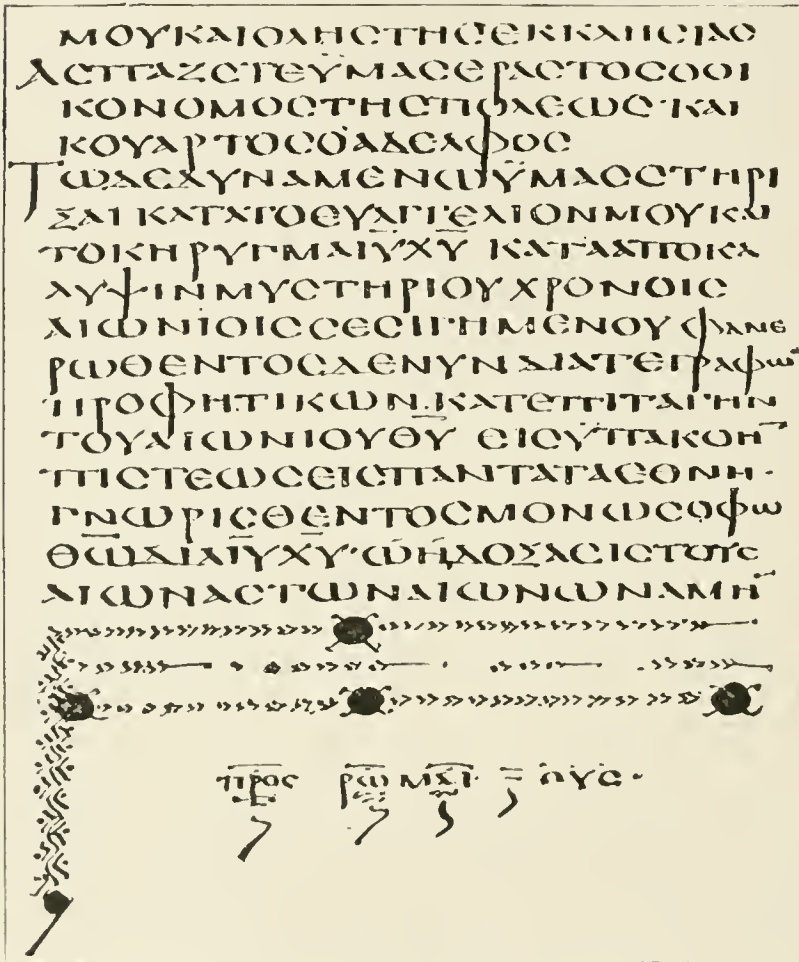 ΜΟΥΚΑΙΟΛΗϹΤΗϹΕΚΚΛΗϹΙΑϹ
ΑϹΠΑΖΕΤΕΫΜΑϹΕΡΑϹΤΟϹΟΟΙ
ΚΟΝΟΜΟϹΤΗϹΠΟΛΕΩϹ·ΚΑΙ
ΚΟΥΑΡΤΟϹΟΑΔΕΛΦΟϹ
ΤΩΔΕΔΥΝΑΜΕΝΩΫΜΑϹϹΤΗΡΙ
ΞΑΙΚΑΤΑΤΟΕΥΑΓΓΕΛΙΟΝΜΟΥΚΑΙ
ΤΟΚΗΡΥΓΜΑΙ̅Υ̅Χ̅Υ̅ ΚΑΤΑΑΠΟΚΑ
ΛΥΨΙΝΜΥϹΤΗΡΙΟΥΧΡΟΝΟΙϹ
ΑΙΩΝΙΟΙϹϹΕϹΙΓΗΜΕΝΟΥΦΑΝΕ
ΡΩΘΕΝΤΟϹΔΕΝΥΝΔΙΑΤΕΓΡΑΦΩ̅
ΠΡΟΦΗΤΙΚΩΝΚΑΤΕΠΙΤΑΓΗΝ
ΤΟΥΑΙΩΝΙΟΥΘ̅Υ̅ ΕΙϹΫΠΑΚΟΗ̅
ΠΙϹΤΕΩϹΕΙϹΠΑΝΤΑΤΑΕΘΝΗ·
ΓΝΩΡΙϹΘΕΝΤΟϹΜΟΝΩϹΟΦΩ
Θ̅Ω̅ΔΙΑΙ̅Υ̅Χ̅Υ̅·ΩΗΔΟΞΑΕΙϹΤΟΥϹ
ΑΙΩΝΑϹΤΩΝΑΙΩΝΩΝΑΜΗ̅
ΠΡΟϹ ΡΩΜΑΙΟΥϹ·